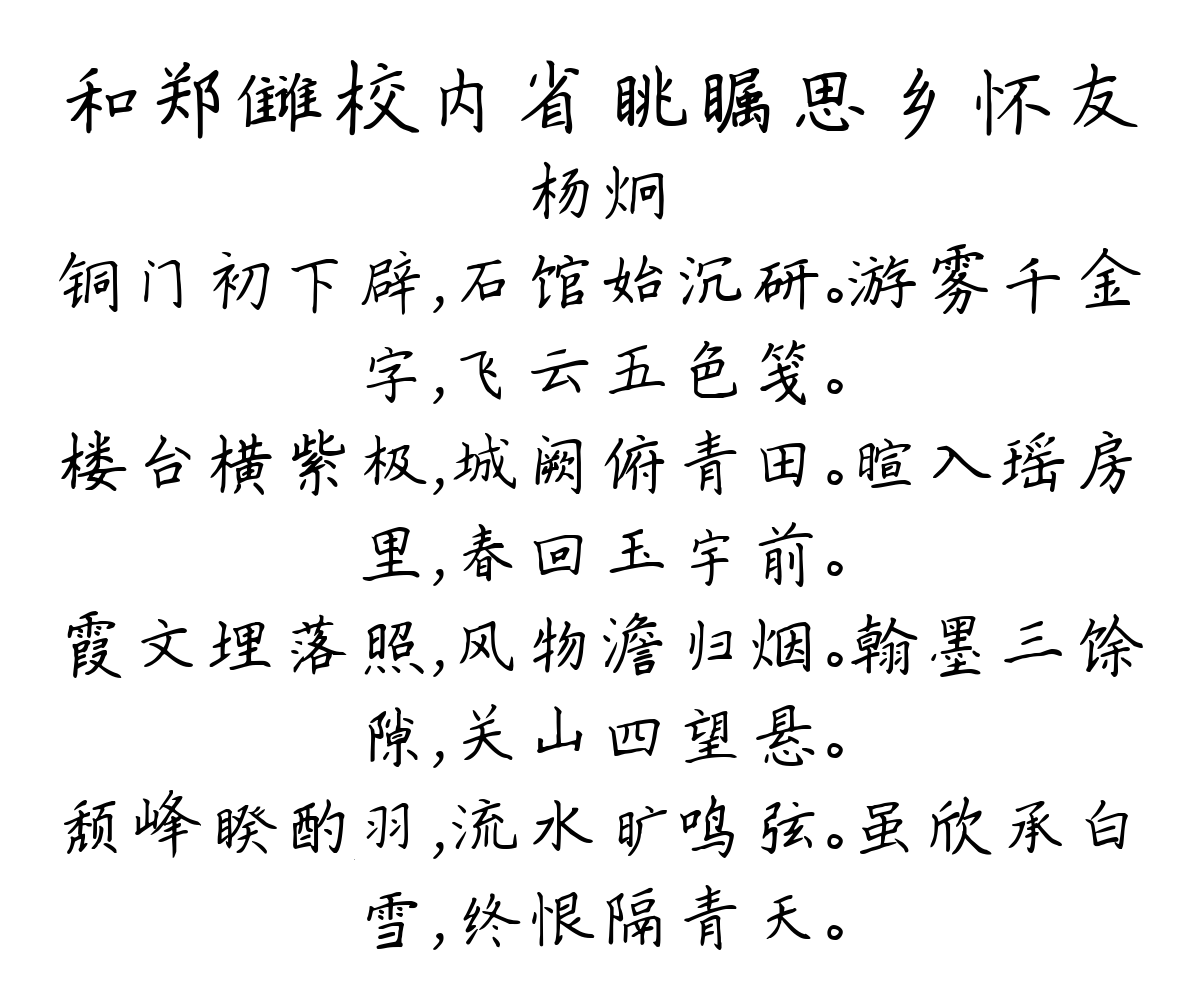 和郑雠校内省眺瞩思乡怀友
杨炯
铜门初下辟,石馆始沉研。游雾千金
字,飞云五色笺。
楼台横紫极,城阙俯青田。暄入瑶房
里,春回玉宇前。
霞文埋落照,风物澹归烟。翰墨三馀
隙,关山四望悬。
颓峰睽酌羽,流水旷鸣弦。虽欣承白
雪,终恨隔青天。